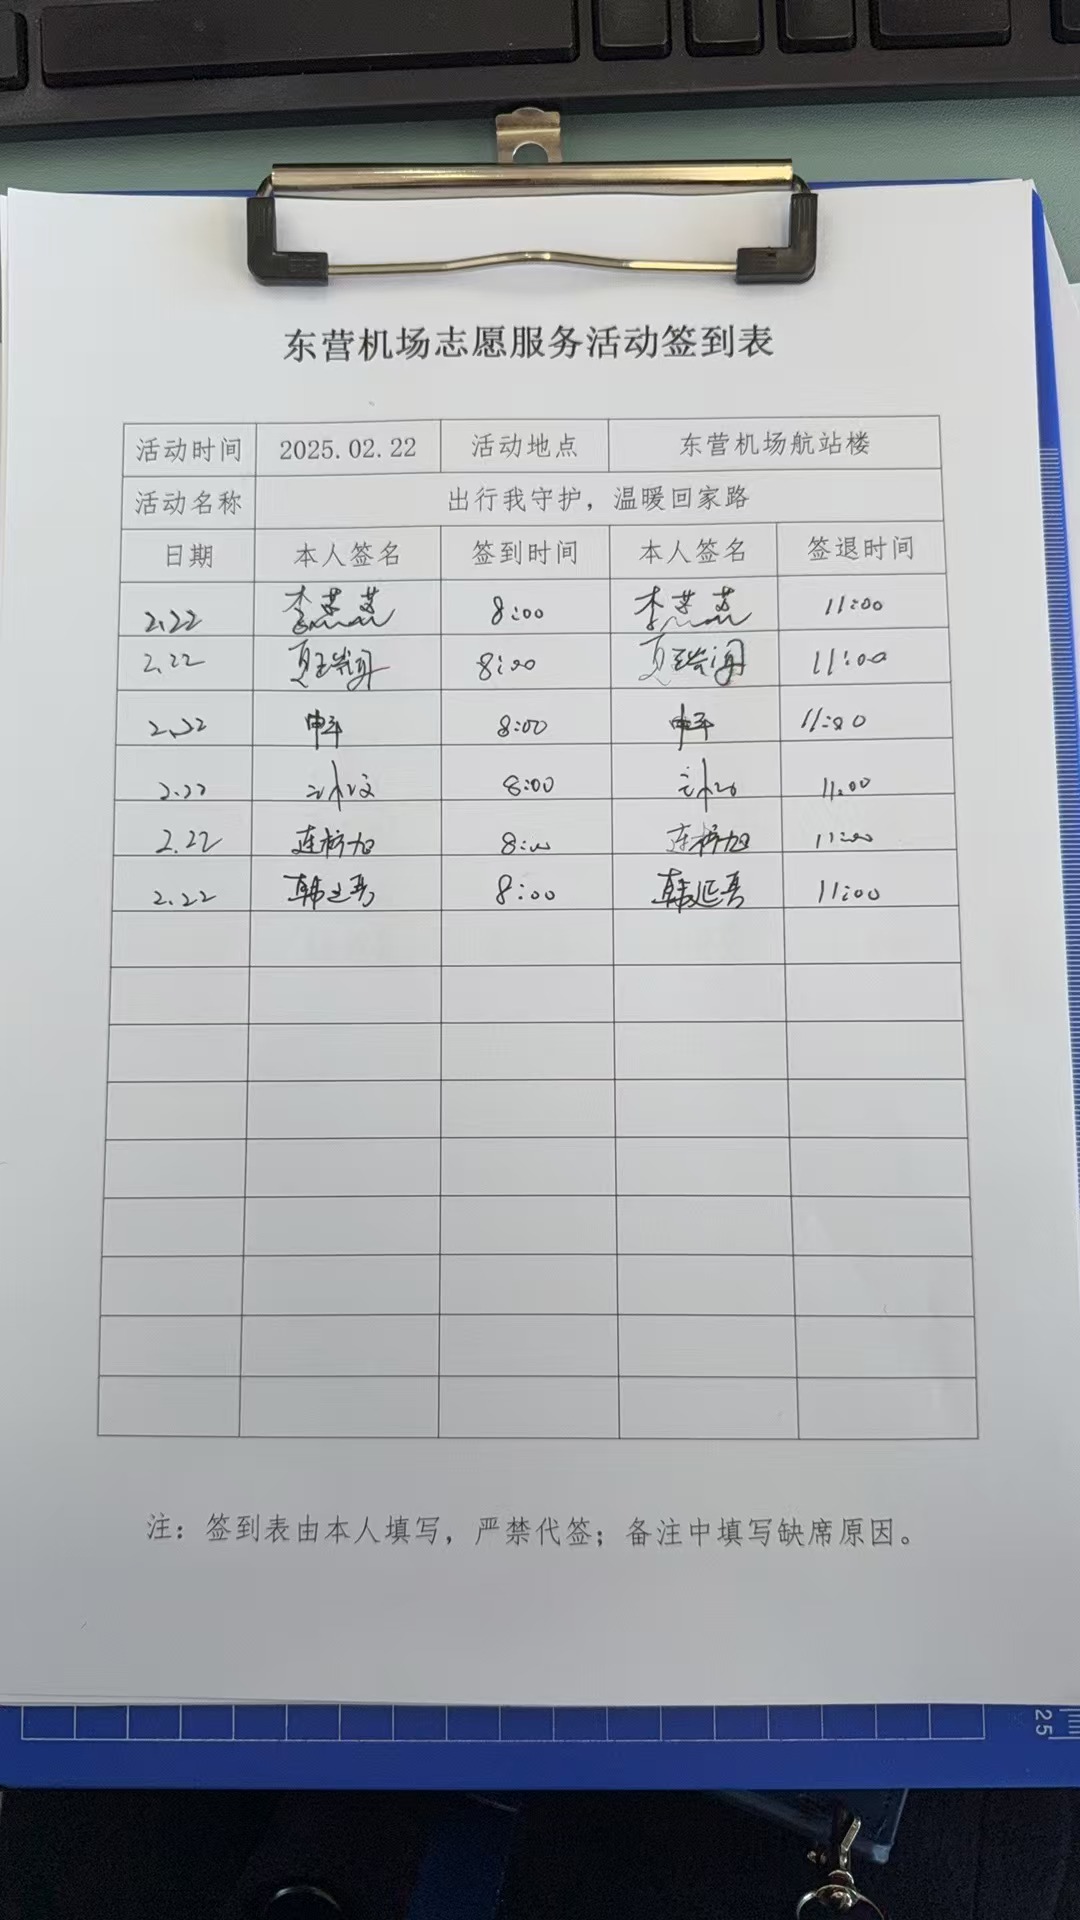 东营机场志愿服务活动签到表
活动时间 2025.02.22 活动地点 东营机场航站楼
活动名称 出行我守护，温暖回家路
日期 本人签名 签到时间 本人签名 签退时间
2.22 李燕燕 8:00 李燕燕 11:00
2.22 8:00 11:00
2.22 申平 8:00 申平 11:00
2.22 8:00 11:00
2.22 8:00 11:00
2.22 8:00 11:00
注：签到表由本人填写，严禁代签；备注中填写缺席原因。
25